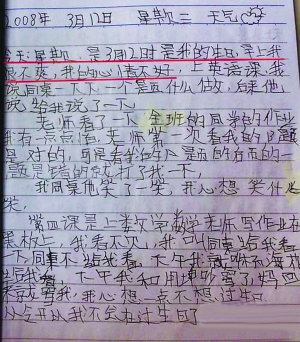 2008年 3月12日 星期三 天气
今天星期 是3月12时是我的生日,早上我
很不爽,我的心情不好,上英语课,我
说同桌一下下一个是怎么做,后来他
说给我说了一下
老师看了一下全班的同学的作业
我有一点点 老师第一次看我的 题
是对的, 是看我 是 的方面的一
题是错的就打了我一下,
我同桌他笑了一笑,我心想笑什么
笑,
第四课是上数学 老师写作业在
黑板上,我看不见,我叫同桌给我看
一下同桌不给我看,下午我就
给我 ,下午我和用坤吵了妈四
来就骂我,我心想一点不想过生日
从今开从我不会在过生日了